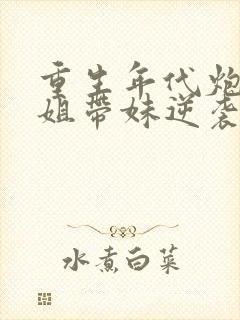 重生年代炮
姐带妹逆袭
水煮白菜